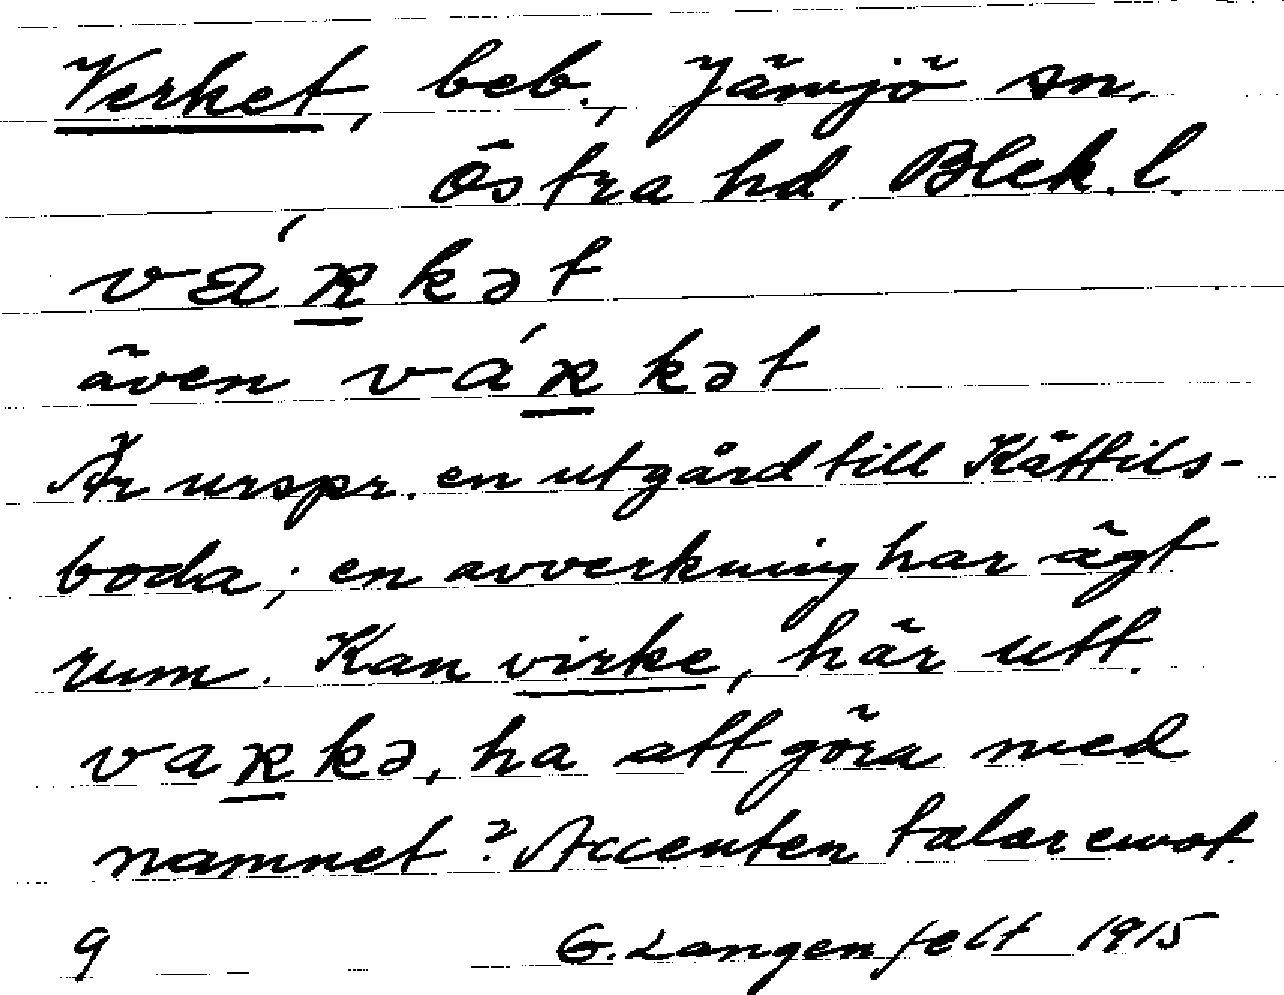 Verket, beb., Jämjö sn,
Östra hd, Blek. l.
váʀkət
även váʀkət
Är urspr. en utgård till Kättils-
boda; en avverkning har ägt
rum. Kan virke, här utt.
vaʀkə, ha att göra med
namnet? Accenten talar emot.
9 G. Langenfelt 1915